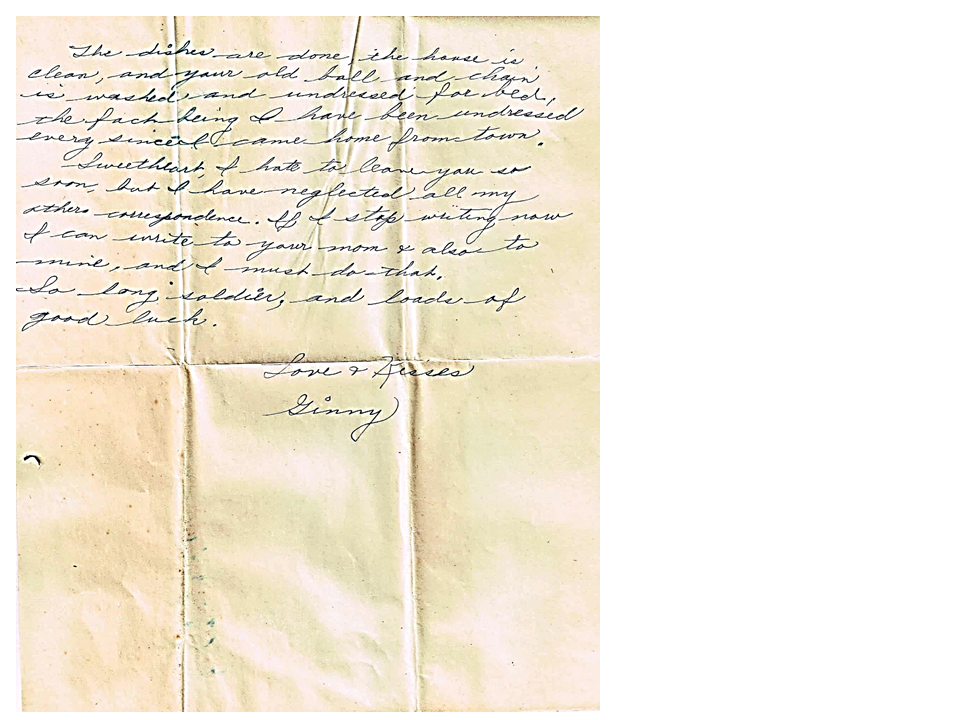 The dishes are done, the house is
clean, and your old ball and chain
is washed and undressed for bed,
the fact being I have been undressed
every since I came home from town.
Sweetheart, I hate to leave you so
soon, but I have neglected all my
others correspondence. If I stop writing now
I can write to your mom & also to
mine, and I must do that.
So long soldier, and loads of
good luck.
Love & Kisses
Ginny